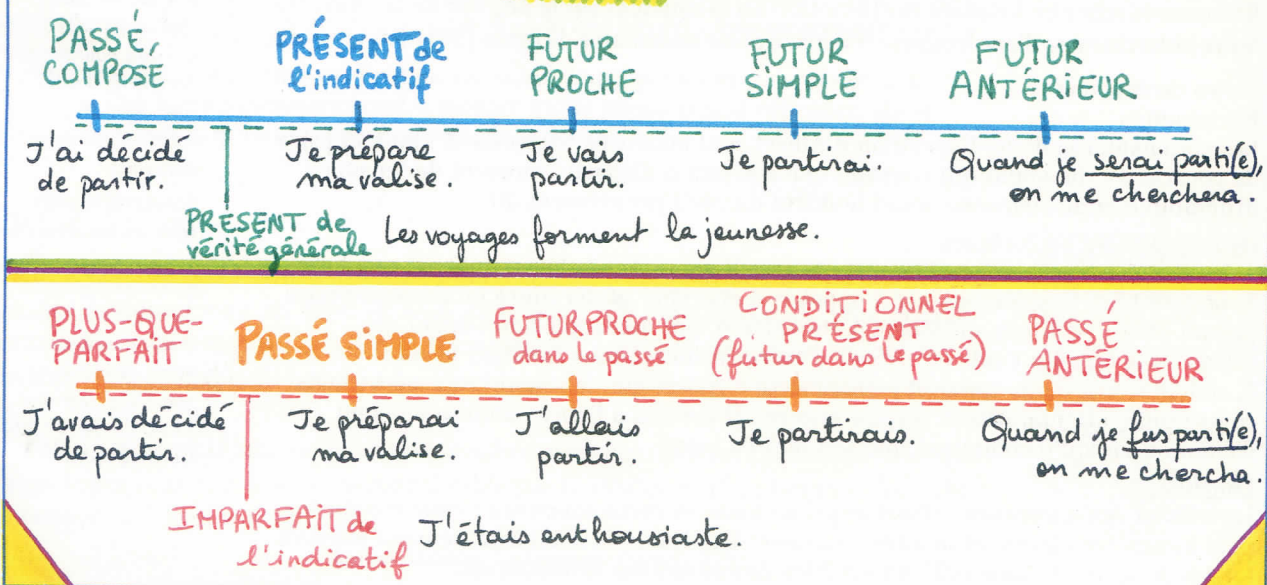 PASSÉ
COMPOSÉ
PRÉSENT de
l'indicatif
FUTUR
PROCHE
FUTUR
SIMPLE
FUTUR
ANTÉRIEUR
J'ai décidé
de partir.
Je prépare
ma valise.
Je vais
partir.
Je partirai.
Quand je serai parti(e),
on me cherchera.
PRÉSENT de
vérité générale
Les voyages forment la jeunesse.
PLUS-QUE-
PARFAIT
PASSÉ SIMPLE
FUTUR PROCHE
dans le passé
CONDITIONNEL
PRÉSENT
(futur dans le passé)
PASSÉ
ANTÉRIEUR
J'avais décidé
de partir.
Je préparai
ma valise.
J'allais
partir.
Je partirais.
Quand je fus parti(e),
on me chercha.
IMPARFAIT de
l'indicatif
J'étais enthousiaste.